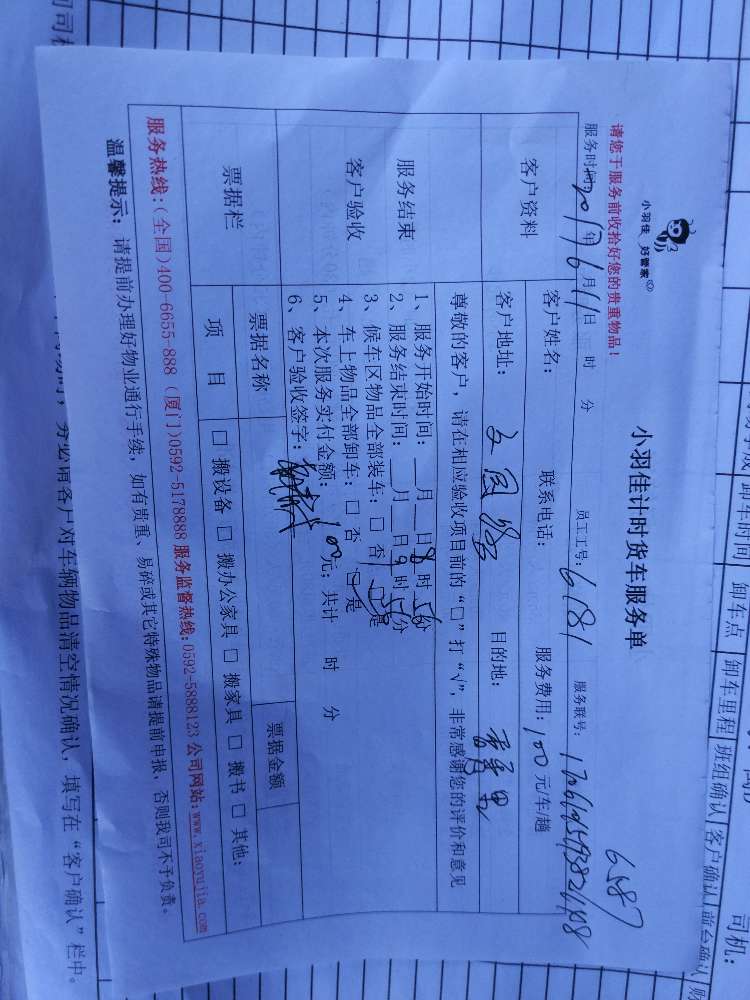 6587
小羽佳 好管家
小羽佳计时货车服务单
请您于服务前收拾好您的贵重物品！
服务时间: 2017年6月11日 时 分 员工工号: 6181 服务联号:
客户资料
客户姓名: 联系电话: 服务费用: 100元/车/趟
客户地址: 目的地:
服务结束
客户验收
尊敬的客户，请在相应验收项目前的“□”打“√”，非常感谢您的评价和意见
1、服务开始时间: __月__日8时 分
2、服务结束时间: __月__日9时 分
3、候车区物品全部装车: □ 否 □ 是
4、车上物品全部卸车: □ 否 □ 是
5、本次服务实付金额: 100元; 共计 时 分
6、客户验收签字:
票据栏
票据名称 票据金额
项 目 □ 搬设备 □ 搬办公家具 □ 搬家具 □ 搬书 □ 其他:
服务热线:(全国)400-6655-888 (厦门)0592-5178888 服务监督热线:0592-5888123 公司网站:www.xiaoyujia.com
温馨提示: 请提前办理好物业通行手续，如有贵重、易碎或其它特殊物品请提前申报，否则我司不予负责。
司机:
卸车时间 卸车点 卸车里程 班组确认 客户确认 前台确认
务必请客户对车辆物品清空情况确认，填写在“客户确认”栏中。